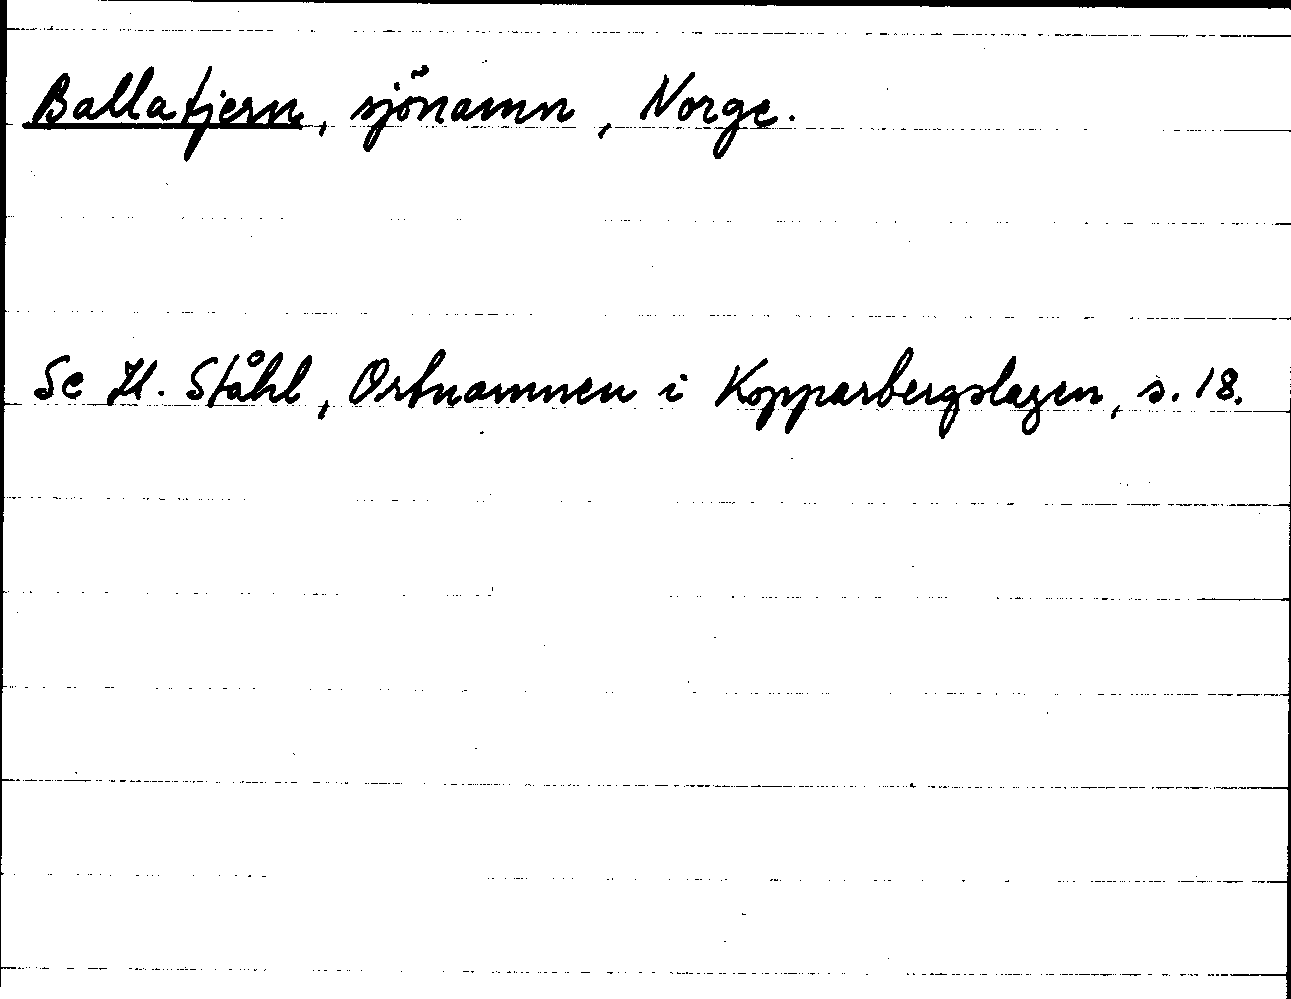 Ballatjern, sjönamn, Norge.
Se H. Ståhl, Ortnamnen i Kopparbergslagen, s. 18.